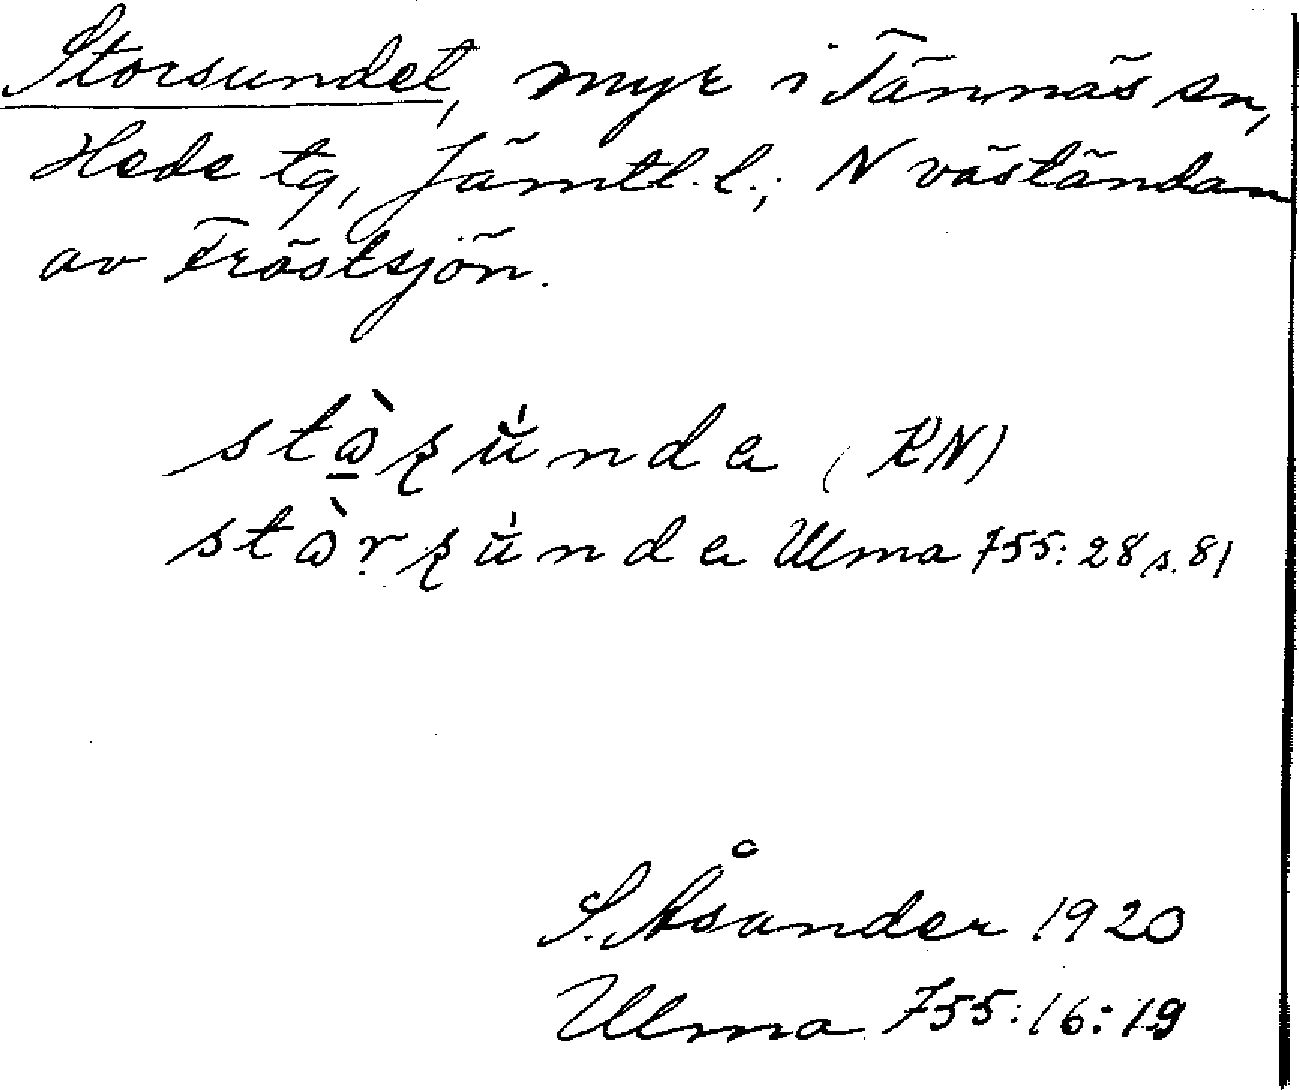 Storsundet, myr i Tännäs sn,
Hede tg, Jämtl. l.; N väständan
av Tröstsjön.
(RN)
Ulma 755:28 s. 81
S. Åsander 1920
Ulma 755:16:19